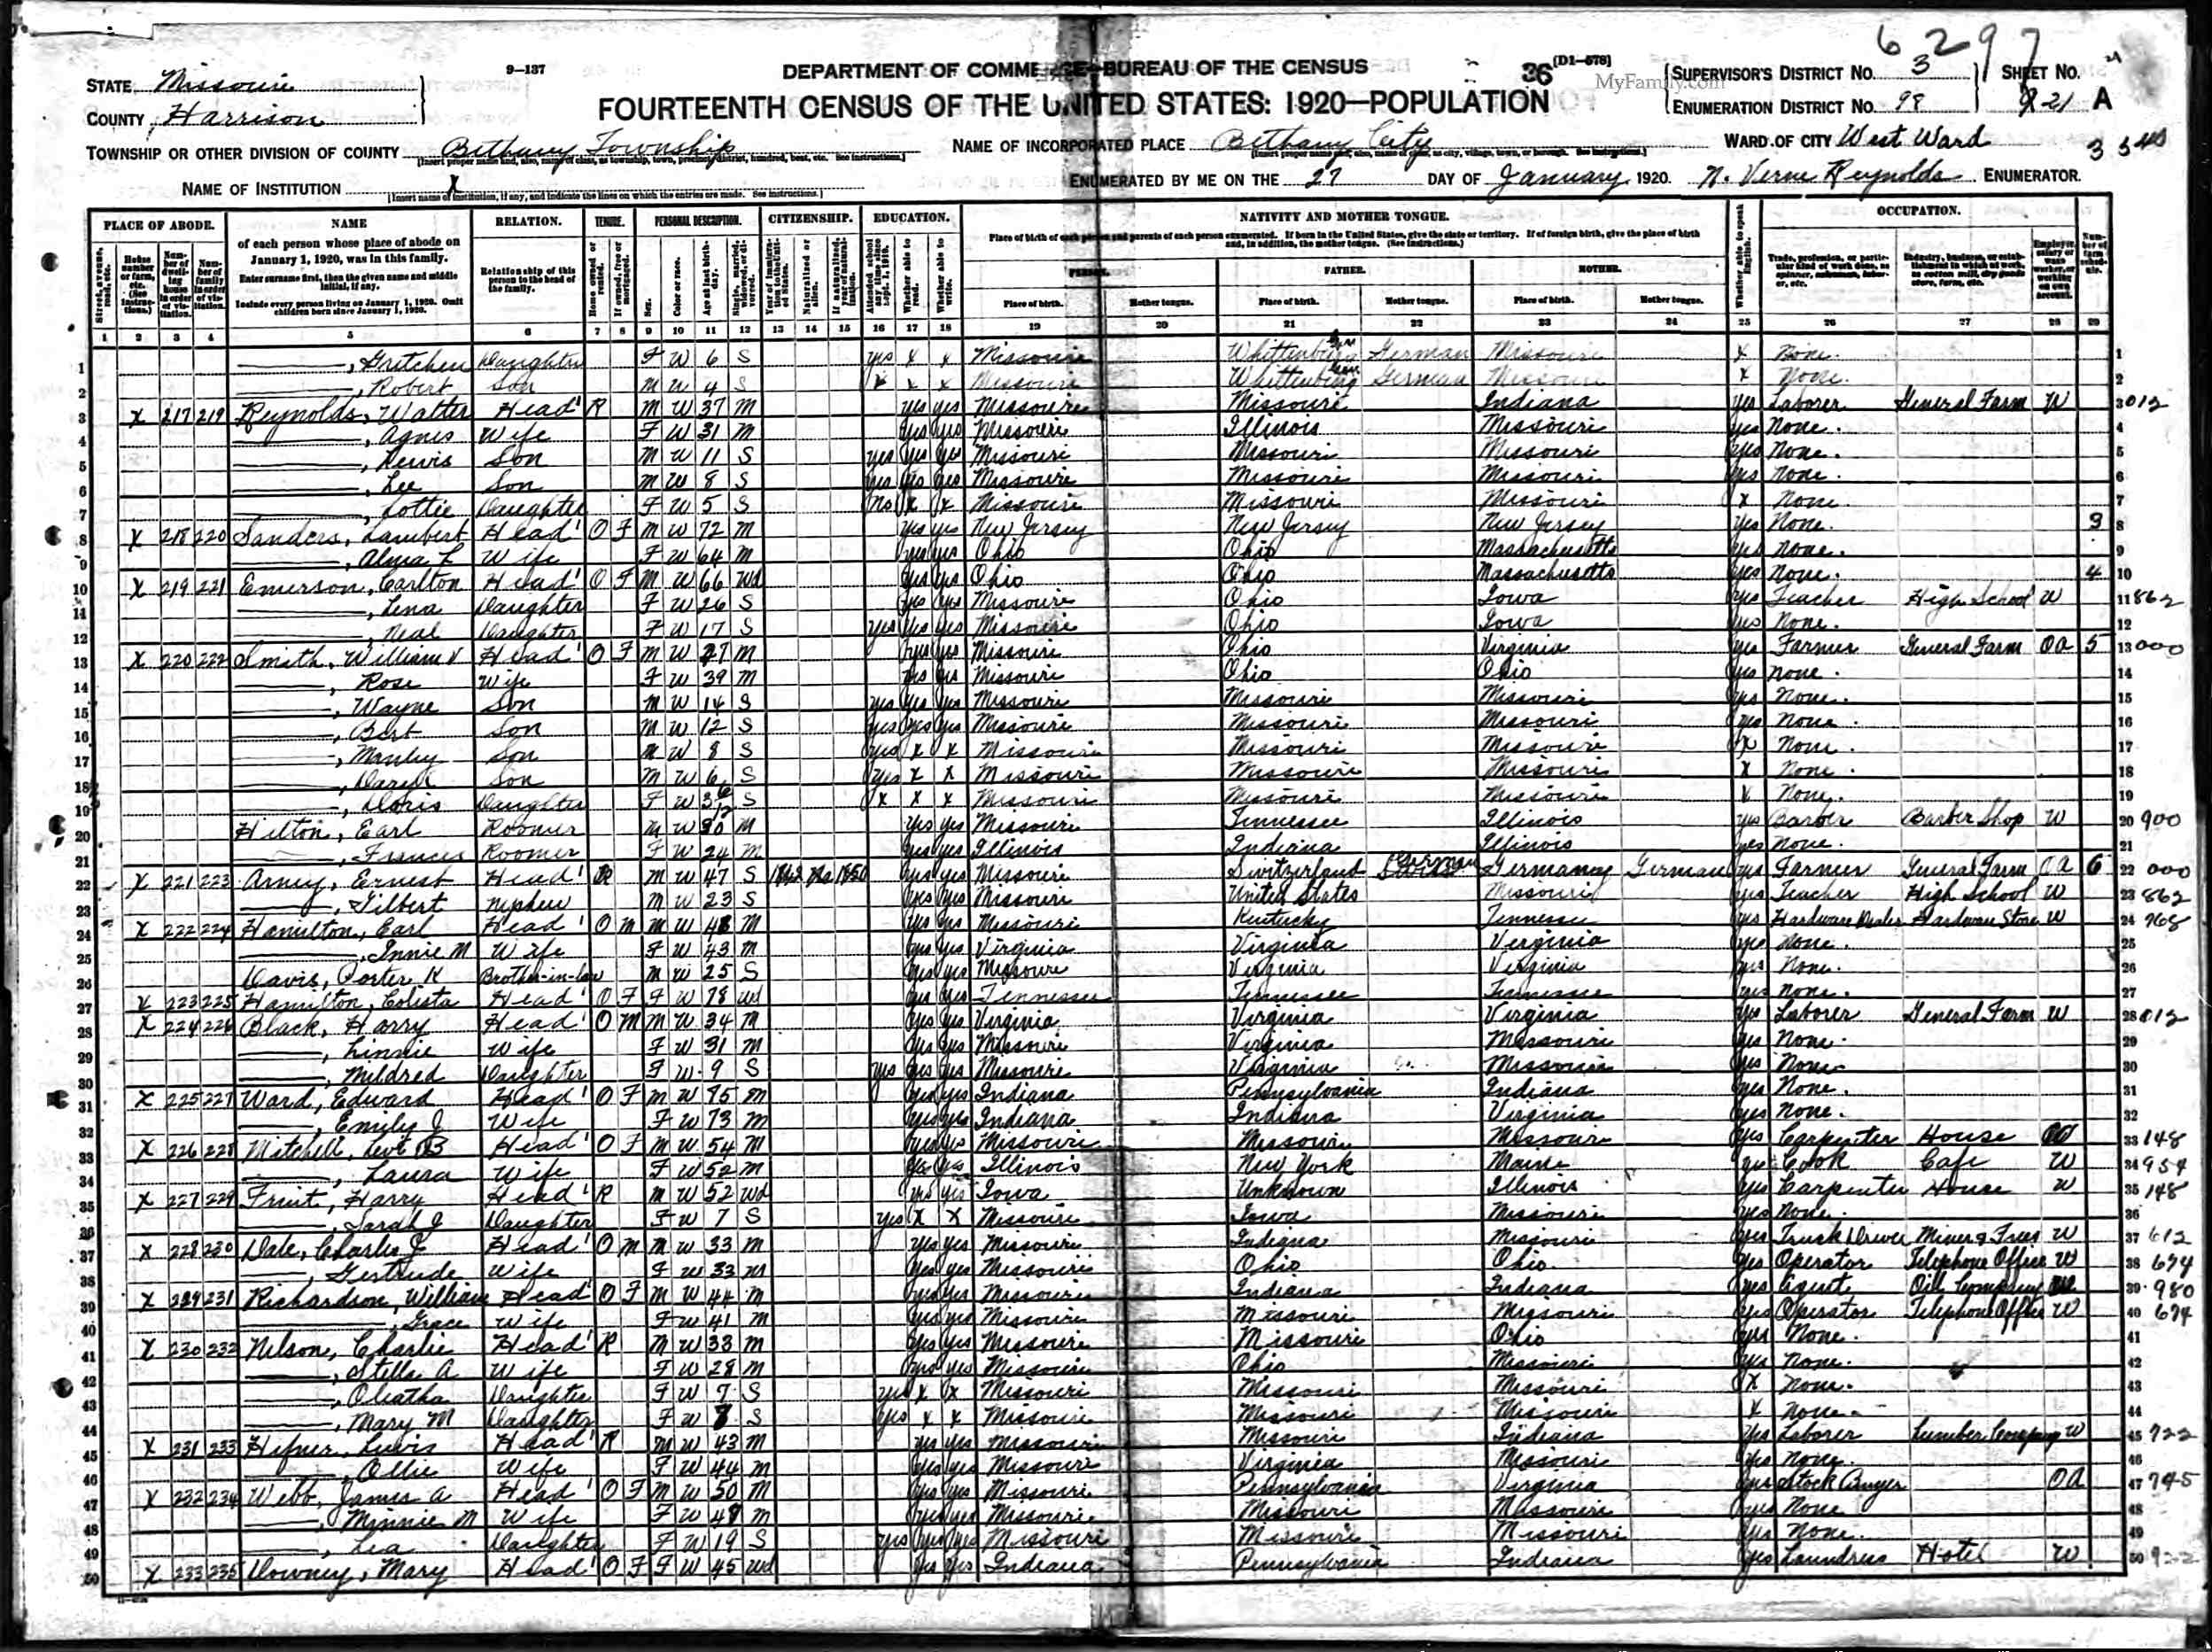 6297
9-137
DEPARTMENT OF COMMERCE—BUREAU OF THE CENSUS
36
(D1-578)
MyFamily.com
STATE Missouri
COUNTY Harrison
FOURTEENTH CENSUS OF THE UNITED STATES: 1920—POPULATION
SUPERVISOR'S DISTRICT NO. 3
ENUMERATION DISTRICT NO. 98
SHEET NO. 21 A
TOWNSHIP OR OTHER DIVISION OF COUNTY Bethany Township
NAME OF INCORPORATED PLACE Bethany City
WARD OF CITY West Ward
NAME OF INSTITUTION X
[Insert name of institution, if any, and indicate the lines on which the entries are made. See instructions.]
ENUMERATED BY ME ON THE 27 DAY OF January, 1920. N. Verne Reynolds, ENUMERATOR.
PLACE OF ABODE. NAME RELATION. TENURE. PERSONAL DESCRIPTION. CITIZENSHIP. EDUCATION. NATIVITY AND MOTHER TONGUE. OCCUPATION.
of each person whose place of abode on January 1, 1920, was in this family.
Enter surname first, then the given name and middle initial, if any.
Include every person living on January 1, 1920. Omit children born since January 1, 1920.
Relationship of this person to the head of the family.
PERSON. FATHER. MOTHER.
Place of birth. Mother tongue. Place of birth. Mother tongue. Place of birth. Mother tongue.
1 2 3 4 5 6 7 8 9 10 11 12 13 14 15 16 17 18 19 20 21 22 23 24 25 26 27 28 29
1 —, Gretchen Daughter F W 6 S yes x x Missouri German Missouri x None. 1
2 —, Robert Son M W 4 S x x x Missouri German Missouri x None. 2
3 X 217 219 Reynolds, Walter Head R M W 37 M yes yes Missouri Missouri Indiana yes Laborer General Farm W 3 012
4 —, Agnes Wife F W 31 M yes yes Missouri Illinois Missouri yes None. 4
5 —, Lewis Son M W 11 S yes yes yes Missouri Missouri Missouri yes None. 5
6 —, Lee Son M W 8 S yes yes yes Missouri Missouri Missouri yes None. 6
7 —, Lottie Daughter F W 5 S No x x Missouri Missouri Missouri x None 7
8 X 218 220 Sanders, Lambert Head O F M W 72 M yes yes New Jersey New Jersey New Jersey yes None. 3 8
9 —, Alma L Wife F W 64 M yes yes Ohio Ohio Massachusetts yes None. 9
10 X 219 221 Emerson, Carlton Head O F M W 66 Wd yes yes Ohio Ohio Massachusetts yes None. 4 10
11 —, Lena Daughter F W 26 S yes yes Missouri Ohio Iowa yes Teacher High School W 11 862
12 —, Neal Daughter F W 17 S yes yes yes Missouri Ohio Iowa yes None. 12
13 X 220 222 Smith, William V Head O F M W M yes yes Missouri Ohio Virginia yes Farmer General Farm OA 5 13 000
14 —, Rose Wife F W 39 M yes yes Missouri Ohio Ohio yes None. 14
15 —, Wayne Son M W 14 S yes yes yes Missouri Missouri Missouri yes None. 15
16 —, Bert Son M W 12 S yes yes yes Missouri Missouri Missouri yes None. 16
17 —, Manley Son M W 8 S yes x x Missouri Missouri Missouri x None. 17
18 Son M W 6 S yes x x Missouri Missouri Missouri x None. 18
19 —, Doris Daughter F W 3 6/12 S x x x Missouri Missouri Missouri x None. 19
20 Hilton, Earl Roomer M W 30 M yes yes Missouri Tennessee Illinois yes Barber Barber Shop W 20 900
21 —, Frances Roomer F W 24 M yes yes Illinois Indiana Illinois yes None. 21
22 X 221 223 Arney, Ernest Head R M W 47 S yes yes Missouri Switzerland German Germany German yes Farmer General Farm OA 6 22 000
23 —, Gilbert Nephew M W 23 S yes yes Missouri United States Missouri yes Teacher High School W 23 862
24 X 222 224 Hamilton, Earl Head O M M W M yes yes Missouri Kentucky Tennessee yes Hardware Dealer Hardware Store W 24 768
25 M Wife F W 43 M yes yes Virginia Virginia Virginia yes None. 25
26 Davis, Porter K Brother-in-law M W 25 S yes yes Missouri Virginia Virginia yes None. 26
27 X 223 225 Hamilton, Head O F F W 78 Wd yes yes Tennessee Tennessee Tennessee yes None. 27
28 X 224 226 Black, Harry Head O M M W 34 M yes yes Virginia Virginia Virginia yes Laborer General Farm W 28 012
29 —, Linnie Wife F W 31 M yes yes Missouri Virginia Missouri yes None. 29
30 —, Mildred Daughter F W 9 S yes yes yes Missouri Virginia Missouri yes None 30
31 X 225 227 Ward, Edward Head O F M W 75 M yes yes Indiana Pennsylvania Indiana yes None. 31
32 —, Emily J Wife F W 73 M yes yes Indiana Indiana Virginia yes None. 32
33 X 226 228 Mitchell, Levi B Head O F M W 54 M yes yes Missouri Missouri Missouri yes Carpenter House 33 148
34 —, Laura Wife F W 52 M yes yes Illinois New York Maine yes Cook Cafe W 34 954
35 X 227 229 Fruit, Harry Head R M W 52 Wd yes yes Iowa Unknown Illinois yes Carpenter House W 35 148
36 —, Sarah J Daughter F W 7 S yes x x Missouri Iowa Missouri yes None. 36
37 X 228 230 Dale, Charlie J Head O M M W 33 M yes yes Missouri Indiana Missouri yes Truck Driver W 37 612
38 —, Gertrude Wife F W 33 M yes yes Missouri Ohio Ohio yes Operator Telephone Office W 38 674
39 X 229 231 Richardson, William Head O F M W 44 M yes yes Missouri Indiana Indiana yes Agent Oil Company 39 980
40 —, Grace Wife F W 41 M yes yes Missouri Missouri Missouri yes Operator Telephone Office W 40 674
41 X 230 232 Nelson, Charlie Head R M W 33 M yes yes Missouri Missouri Ohio yes None. 41
42 —, Stella A Wife F W 28 M yes yes Missouri Ohio Missouri yes None. 42
43 —, Oleatha Daughter F W 9 S yes x x Missouri Missouri Missouri x None. 43
44 —, Mary M Daughter F W S yes x x Missouri Missouri Missouri x None 44
45 X 231 233 Hefner, Lewis Head R M W 43 M yes yes Missouri Missouri Indiana yes Laborer Lumber Company W 45 722
46 —, Ollie Wife F W 44 M yes yes Missouri Virginia Missouri yes None. 46
47 X 232 234 Webb, James A Head O F M W 50 M yes yes Missouri Pennsylvania Virginia yes Stock Buyer OA 47 745
48 —, Minnie M Wife F W M yes yes Missouri Missouri Missouri yes None 48
49 Daughter F W 19 S yes yes yes Missouri Missouri Missouri yes None. 49
50 X 233 235 Downey, Mary Head O F F W 45 Wd yes yes Indiana Pennsylvania Indiana yes Laundress Hotel W 50 922